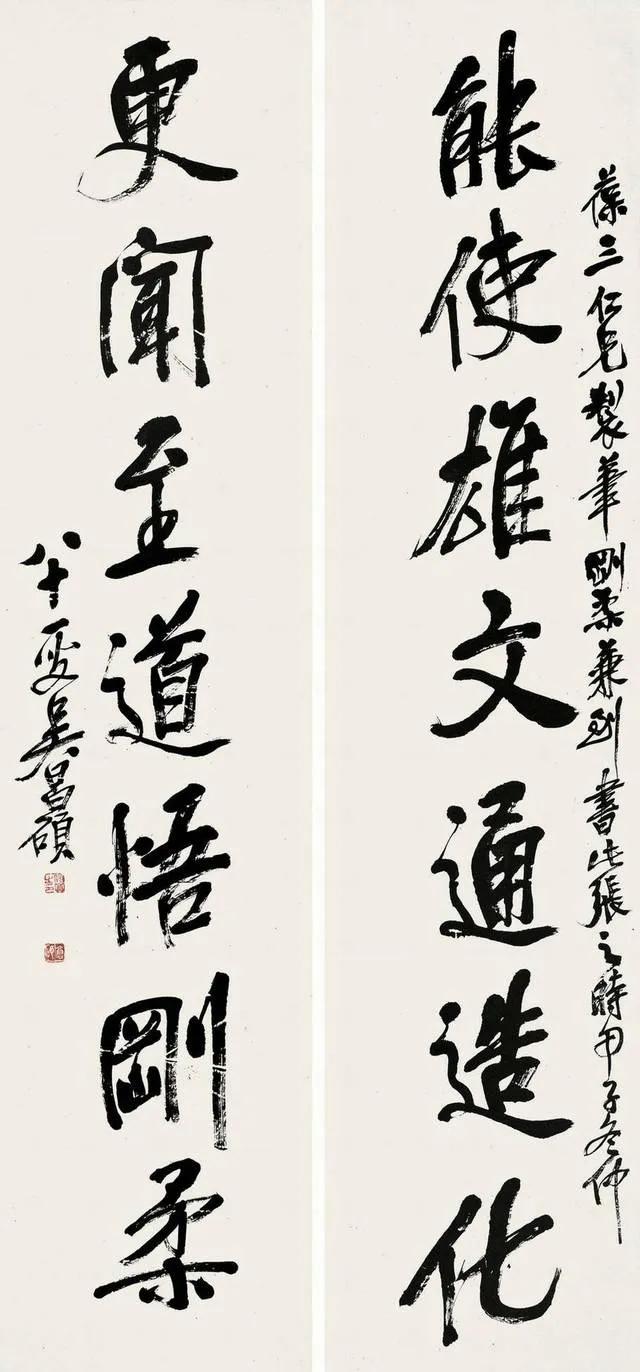 葆三仁兄製筆剛柔兼到書此張之時甲子冬仲
能使雄文通造化
更聞至道悟剛柔
八十一叟吳昌碩